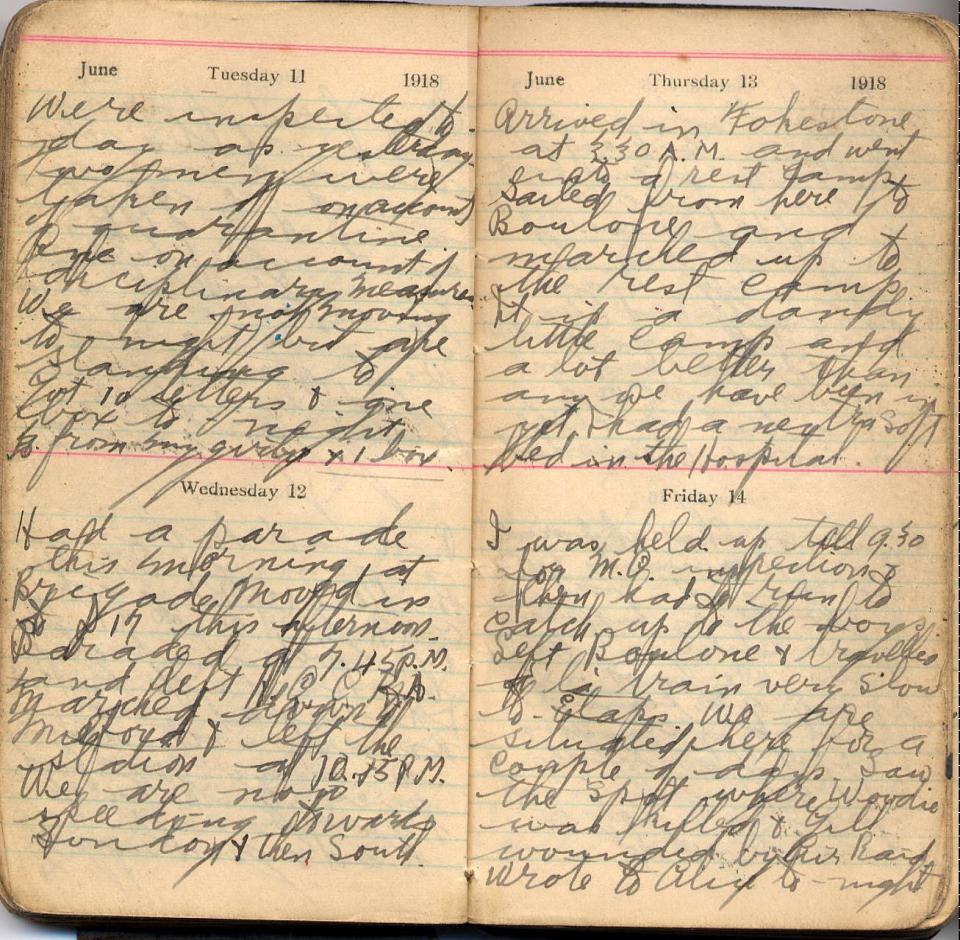 June Tuesday 11 1918
Were inspected to
day as yesterday.
two men were
taken off on account
of quarantine.
One on account of
disciplinary measures
We are not moving
to night but are
standing to
Got 10 letters & one
box to night
from my girly & 1 box.
Wednesday 12
Had a parade
this morning at
Brigade Moved in
to 17 this afternoon.
Paraded at 7.45 P.M.
and left
Marched down to
Milford & left the
station at 10.15 P.M.
We are now
speeding towards
London & then South.
June Thursday 13 1918
Arrived in Fokestone
at 3.30 A.M. and went
into a rest camp
Sailed from here to
Boulone and
marched up to
the rest camp
It is a dandy
little camp and
a lot better than
any we have been in
yet. I had a new soft
bed in the Hospital.
Friday 14
I was held up till 9.30
for M.O. inspection &
then had to run to
catch up to the boys.
Left Boulone & travelled
in train very slow
to Etaps. We are
situated here for a
couple of days. Saw
the spot where Woodie
was killed & Gill
wounded by Air Raid
Wrote to Alice to-night